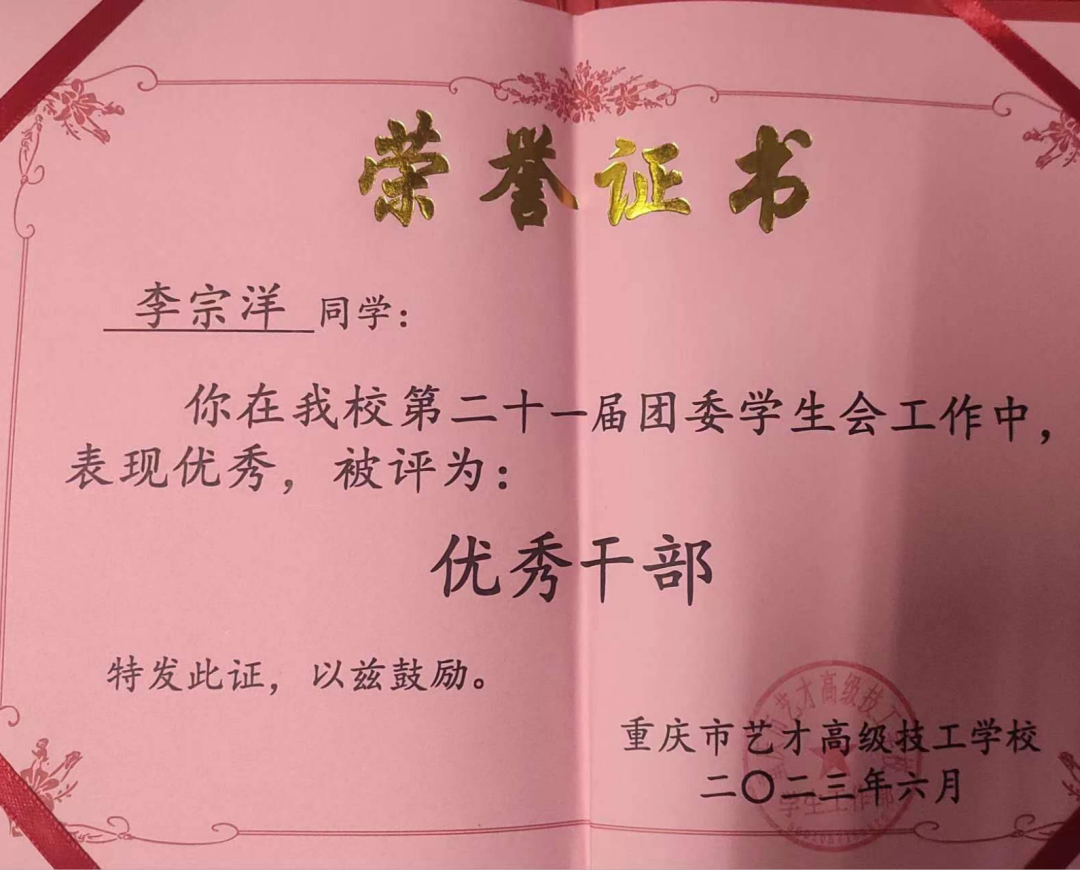 荣誉证书
李宗洋 同学:
你在我校第二十一届团委学生会工作中,
表现优秀,被评为:
优秀干部
特发此证,以兹鼓励。
重庆市艺才高级技工学校
二〇二三年六月
艺才高级技工
学生工作部